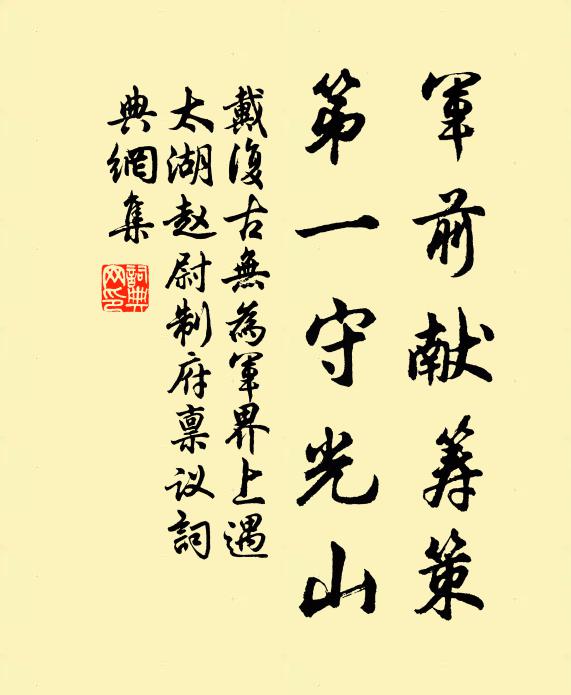 军前献筹策
第一守光山
戴復古無為军界上遇
太湖赵尉制府禀议詞
典網集
詞典网印